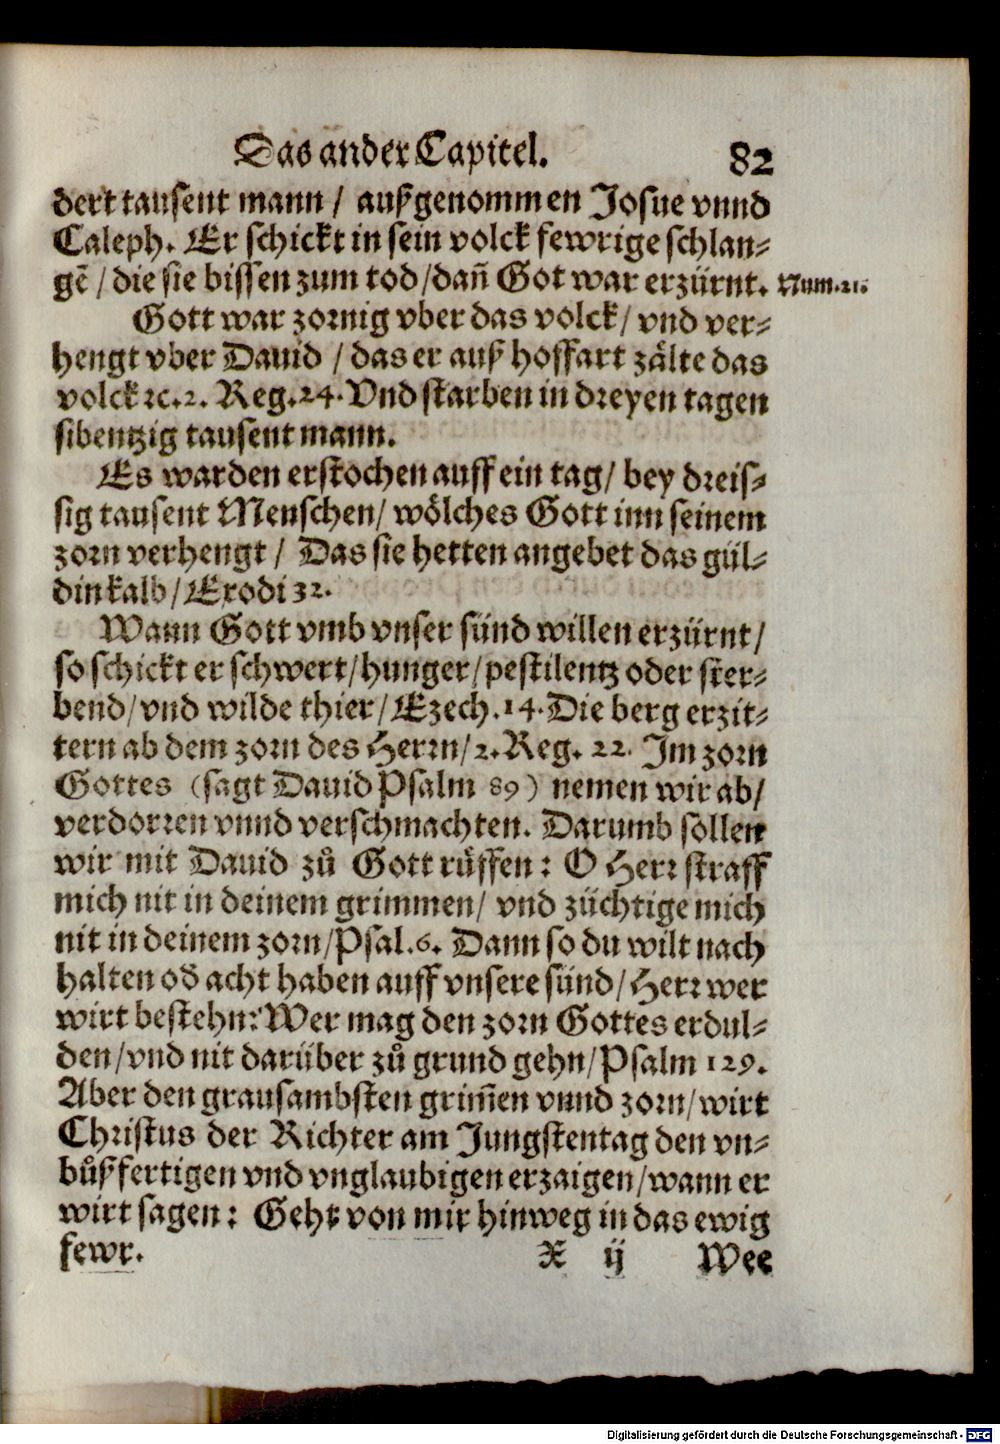 Das ander Capitel. 82
dert tausent mann / außgenommen Josue vnnd
Caleph. Er schickt in sein volck fewrige schlan-
gẽ / die sie bissen zum tod / dañ Got war erzürnt. Num. 21.
Gott war zornig vber das volck / vnd ver-
hengt vber Dauid / das er auß hoffart zälte das
volck ꝛc. 2. Reg. 24. Vnd starben in dreyen tagen
sibentzig tausent mann.
Es warden erstochen auff ein tag / bey dreis-
sig tausent Menschen / wölches Gott inn seinem
zorn verhengt / Das sie hetten angebet das gül-
din kalb / Exodi 32.
Wann Gott vmb vnser sünd willen erzürnt /
so schickt er schwert / hunger / pestilentz oder ster-
bend / vnd wilde thier / Ezech. 14. Die berg erzit-
tern ab dem zorn des Herrn / 2. Reg. 22. Im zorn
Gottes (sagt Dauid Psalm 89) nemen wir ab /
verdorren vnnd verschmachten. Darumb sollen
wir mit Dauid zů Gott rüffen: O Herr straff
mich nit in deinem grimmen / vnd züchtige mich
nit in deinem zorn / Psal. 6. Dann so du wilt nach
halten od̃ acht haben auff vnsere sünd / Herr wer
wirt bestehn? Wer mag den zorn Gottes erdul-
den / vnd nit darüber zů grund gehn / Psalm 129.
Aber den grausambsten grim̃en vnnd zorn / wirt
Christus der Richter am Jungstentag den vn-
bůßfertigen vnd vnglaubigen erzaigen / wann er
wirt sagen: Geht von mir hinweg in das ewig
fewr. X ij Wee
Digitalisierung gefördert durch die Deutsche Forschungsgemeinschaft - DFG